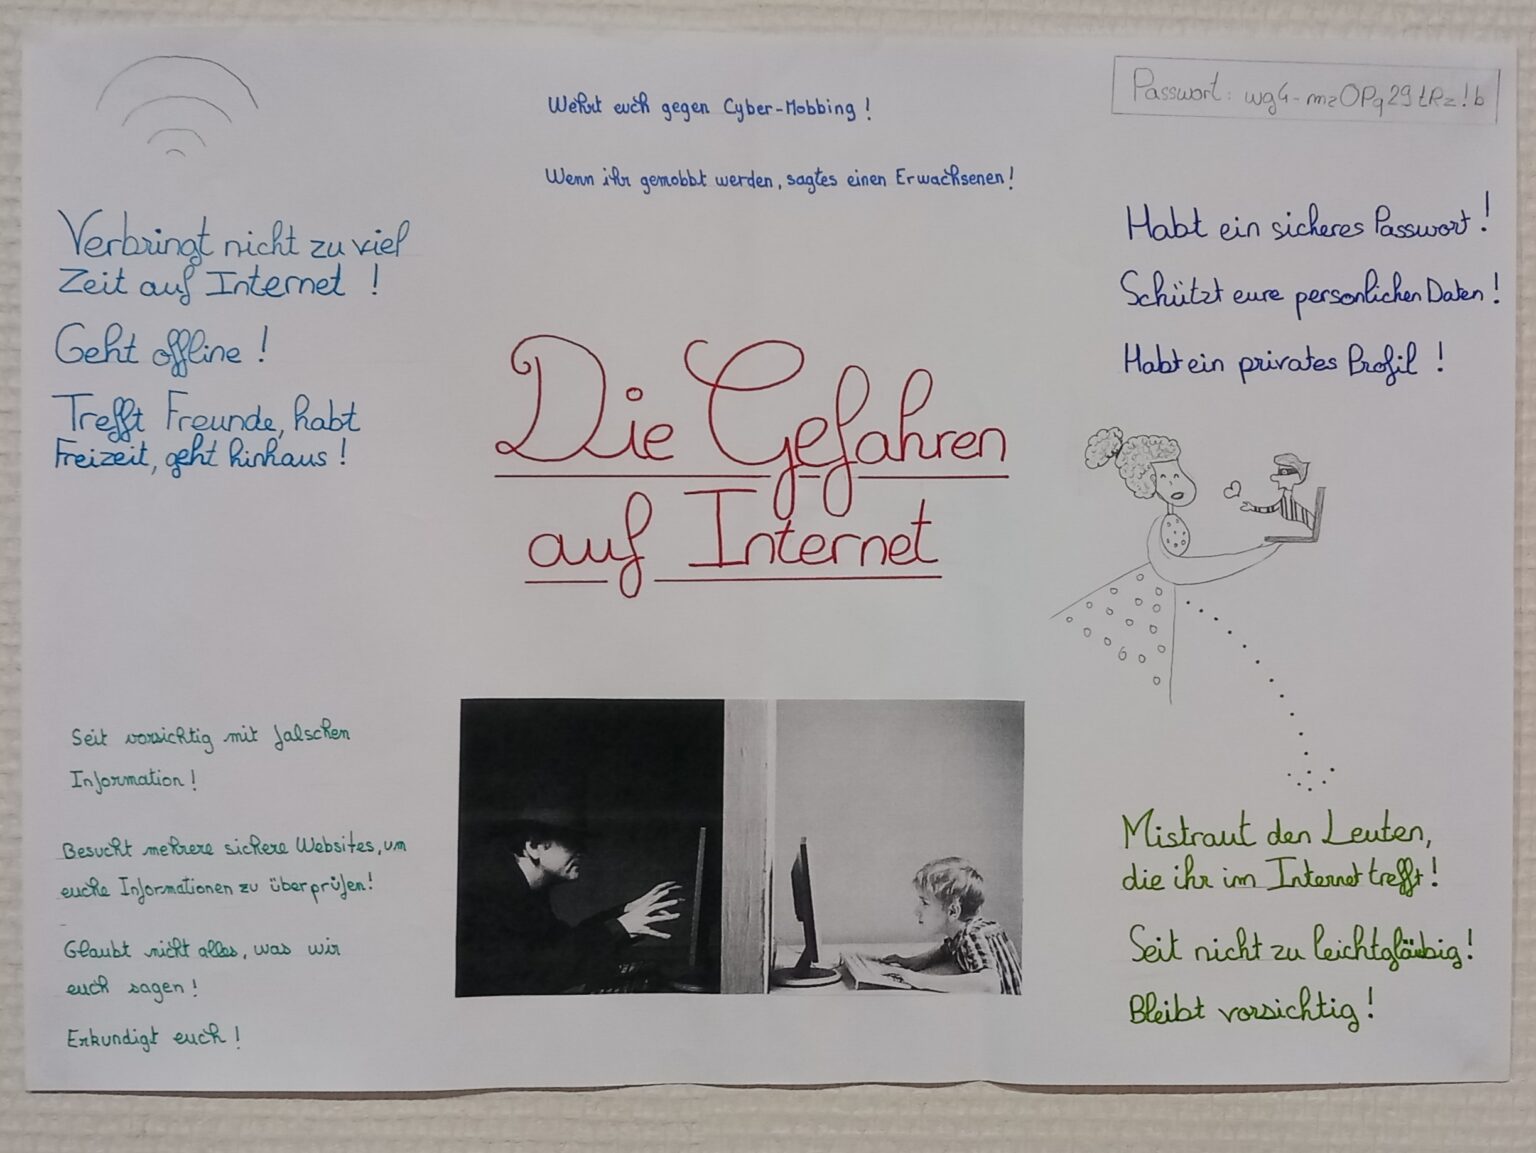 Wehrt euch gegen Cyber-Mobbing !
Wenn ihr gemobbt werden, sagtes einen Erwachsenen !
Passwort : wg4-mzOPq29tRz!b
Verbringt nicht zu viel
Zeit auf Internet !
Geht offline !
Trefft Freunde, habt
Freizeit, geht hinhaus !
Habt ein sicheres Passwort !
Schützt eure personlichen Daten !
Habt ein privates Profil !
Die Gefahren
auf Internet
Seit vorsichtig mit falschen
Information !
Besucht mehrere sichere Websites, um
euche Informationen zu überprüfen !
Glaubt nicht alles, was wir
euch sagen !
Erkundigt euch !
Mistraut den Leuten,
die ihr im Internet trefft !
Seit nicht zu leichtgläubig !
Bleibt vorsichtig !